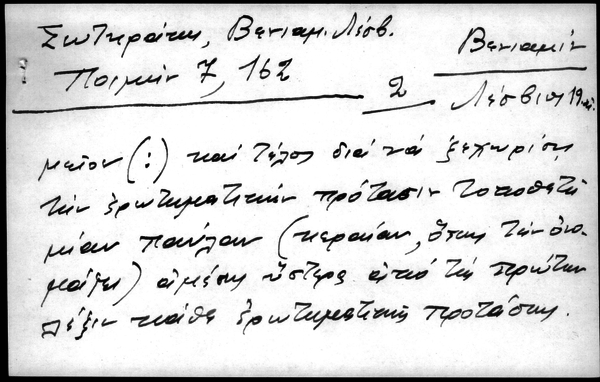 Σωτηράκης, Βενιαμ. Λέσβ.
Βενιαμὶν
Ποιμὴν 7, 162
2
Λέσβιος 19 αἰ.
μεῖον (:) καὶ τέλος διὰ νὰ ξεχωρίσῃ
τὴν ἐρωτηματικὴν πρότασιν τοποθετεῖ
μίαν παύλαν (κεραίαν, ὅπως τὴν ὀνο-
μάζει) ἀμέσως ὕστερα ἀπὸ τὴν πρώτην
λέξιν κάθε ἐρωτηματικῆς προτάσεως.